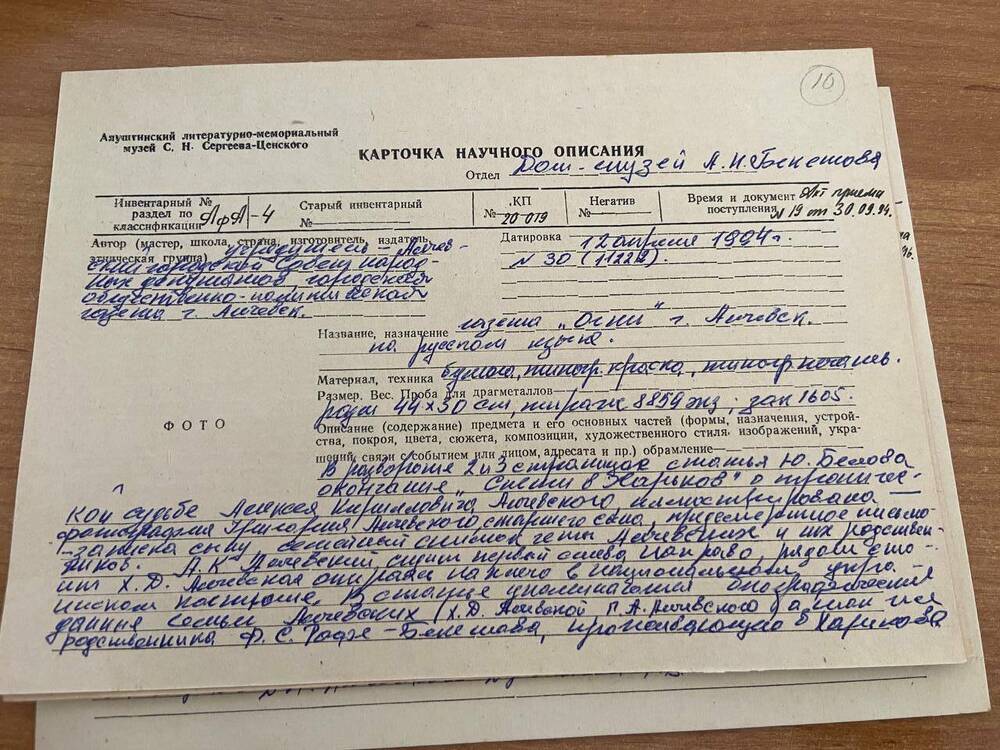 10
Алуштинский литературно-мемориальный
музей С. Н. Сергеева-Ценского
КАРТОЧКА НАУЧНОГО ОПИСАНИЯ
Отдел Дом-музей А.Н. Бекетова
Инвентарный № раздел по классификации АфА-4
Старый инвентарный №
КП № 20 019
Негатив №
Время и документ поступления Акт приема № 19 от 30.09.94г.
Автор (мастер, школа, страна, изготовитель, издатель, этническая группа) учредитель – Алчевский городской Совет народных депутатов, городская общественно-политическая газета г. Алчевск.
Датировка 12 апреля 1994г.
№ 30 (11229).
Название, назначение газета „Огни" г. Алчевск.
на русском языке.
Материал, техника бумага, типогр. краска, типогр. печать.
Размер. Вес. Проба для драгметаллов
разм 44×30 см, тираж 8859 экз; зак 1605.
Описание (содержание) предмета и его основных частей (формы, назначения, устрой-
ства, покроя, цвета, сюжета, композиции, художественного стиля, изображений, укра-
шений, связи с событием или лицом, адресата и пр.) обрамление
ФОТО
В развороте 2 и 3 страницах статья Ю. Белова
окончание „Спеши в Харьков" о трагичес-
кой судьбе Алексея Кирилловича Алчевского, иллюстрирована —
фотография Григория Алчевского старшего сына, предсмертное письмо-
-записка сыну, семейный снимок четы Алчевских и их родствен-
ников. А.К. Алчевский сидит первый слева направо, рядом сто-
ит Х.Д. Алчевская в национальном укра-
инском костюме. В статье упоминаются биографические
данные семьи Алчевских (Х.Д. Алчевской, Г.А. Алчевского) а так же
родственника Ф.С. Бекетова, Харькова